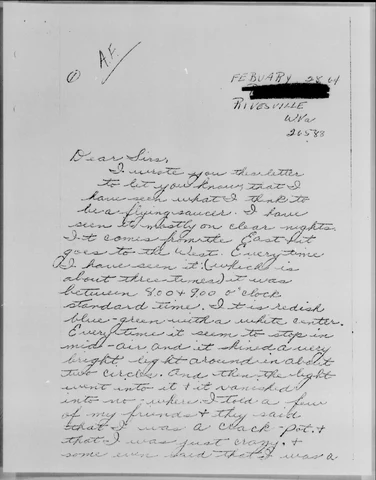 A.F.
①
FEBUARY 28 64
RIVESVILLE
W.Va
26588
Dear Sirs,
I wrote you this letter
to let you know that I
have seen what I think to
be a flying saucer. I have
seen it mostly on clear nights.
It comes from the East & it
goes to the West. Every time
I have seen it (which is
about three times) it was
between 8:00 & 9:00 o'clock
standard time. It is redish
blue-green with a white center.
Every time it seem to stop in
mid-air and it shined a very
bright light around in about
two circles. And then the light
went into it & it vanished
into no where I told a few
of my friends & they said
that I was a crack-pot &
that I was just crazy. &
some even said that I was a